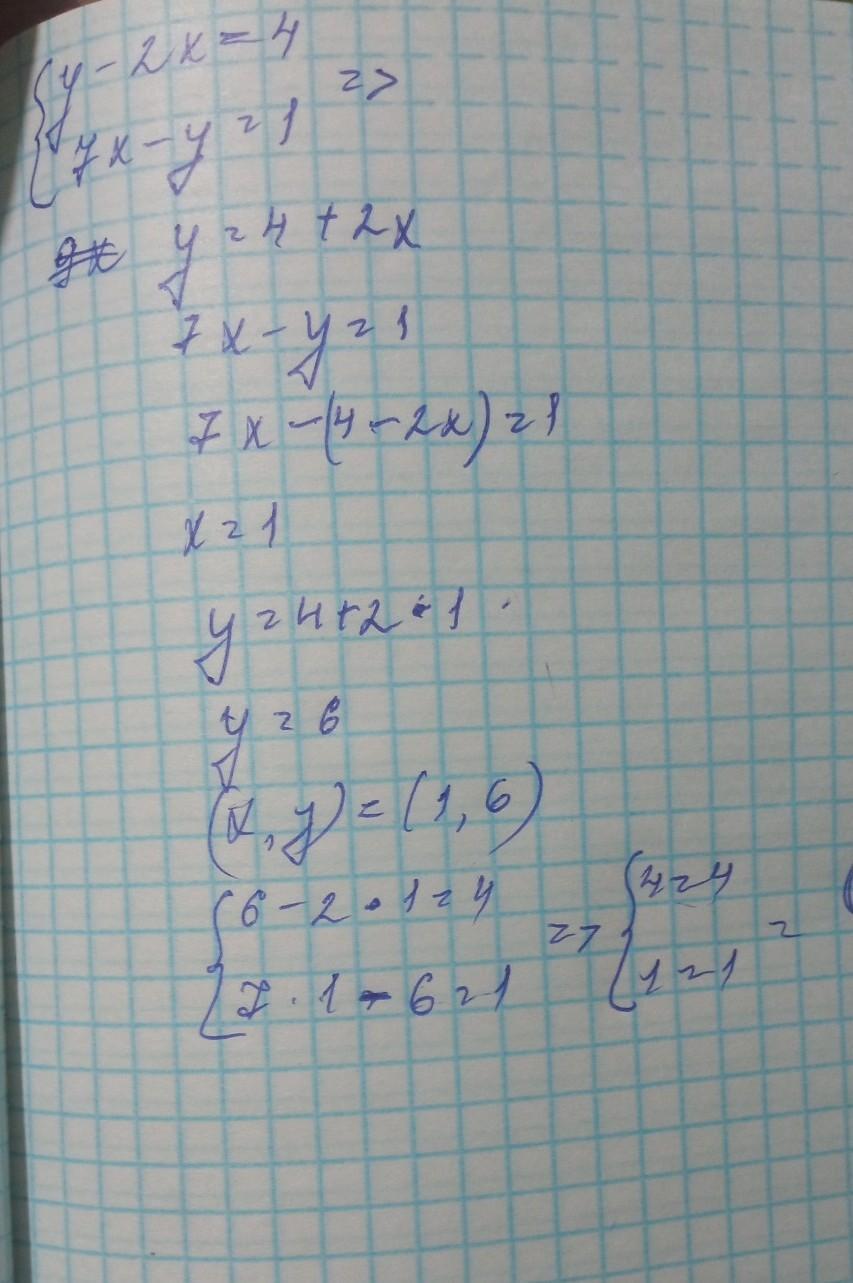 y - 2x = 4
=>
7x - y = 1
y = 4 + 2x
7x - y = 1
7x - (4 - 2x) = 1
x = 1
y = 4 + 2 · 1 .
y = 6
(x, y) = (1, 6)
6 - 2 · 1 = 4 => 4 = 4
7 · 1 - 6 = 1 1 = 1 =